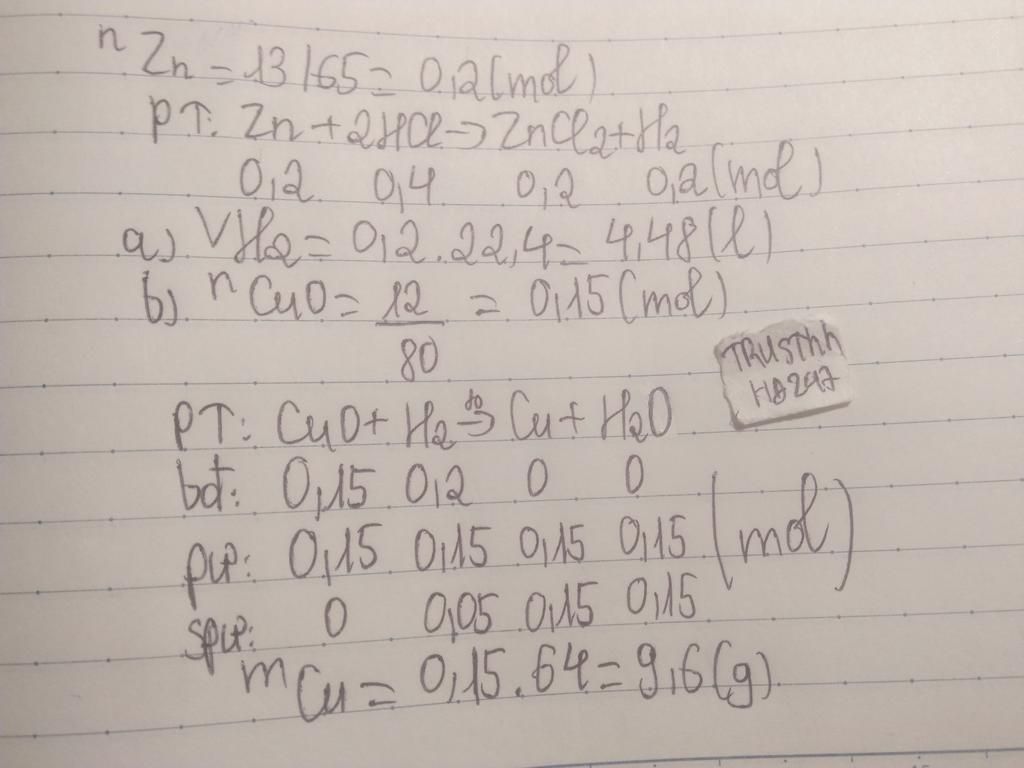 nZn = 13/65 = 0,2 (mol)
PT: Zn + 2HCl → ZnCl2 + H2
0,2 0,4 0,2 0,2 (mol)
a) VH2 = 0,2.22,4 = 4,48 (l)
b) nCuO = 12/80 = 0,15 (mol)
TRUSThh
HB247
PT: CuO + H2 →to Cu + H2O
bđ: 0,15 0,2 0 0
pư: 0,15 0,15 0,15 0,15 (mol)
spư: 0 0,05 0,15 0,15
mCu = 0,15.64 = 9,6 (g)